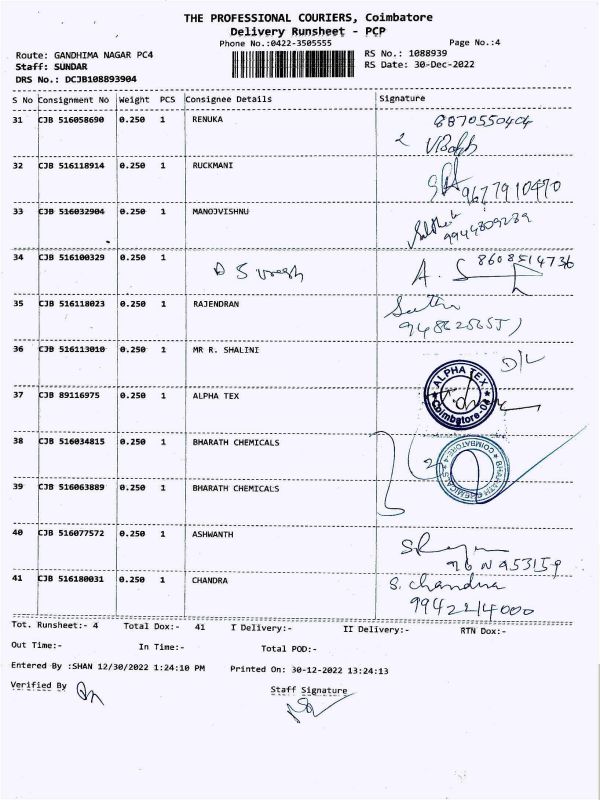 THE PROFESSIONAL COURIERS, Coimbatore
Delivery Runsheet - PCP
Phone No.:0422-3505555
Page No.:4
Route: GANDHIMA NAGAR PC4
RS No.: 1088939
Staff: SUNDAR
RS Date: 30-Dec-2022
DRS No.: DCJB108893904
S No Consignment No Weight PCS Consignee Details Signature
31 CJB 516058690 0.250 1 RENUKA 8870550404
2
32 CJB 516118914 0.250 1 RUCKMANI 9677910470
33 CJB 516032904 0.250 1 MANOJVISHNU
9944809289
34 CJB 516100329 0.250 1 D Suresh A. S 8608514736
35 CJB 516118023 0.250 1 RAJENDRAN
36 CJB 516113010 0.250 1 MR R. SHALINI D/L
37 CJB 89116975 0.250 1 ALPHA TEX ALPHA TEX Coimbatore-04
38 CJB 516034815 0.250 1 BHARATH CHEMICALS 2 BHARATH CHEMICALS COIMBATORE-4
39 CJB 516063889 0.250 1 BHARATH CHEMICALS
40 CJB 516077572 0.250 1 ASHWANTH
41 CJB 516180031 0.250 1 CHANDRA S. Chandra
9942214000
Tot. Runsheet:- 4 Total Dox:- 41 I Delivery:- II Delivery:- RTN Dox:-
Out Time:- In Time:- Total POD:-
Entered By :SHAN 12/30/2022 1:24:10 PM Printed On: 30-12-2022 13:24:13
Verified By
Staff Signature